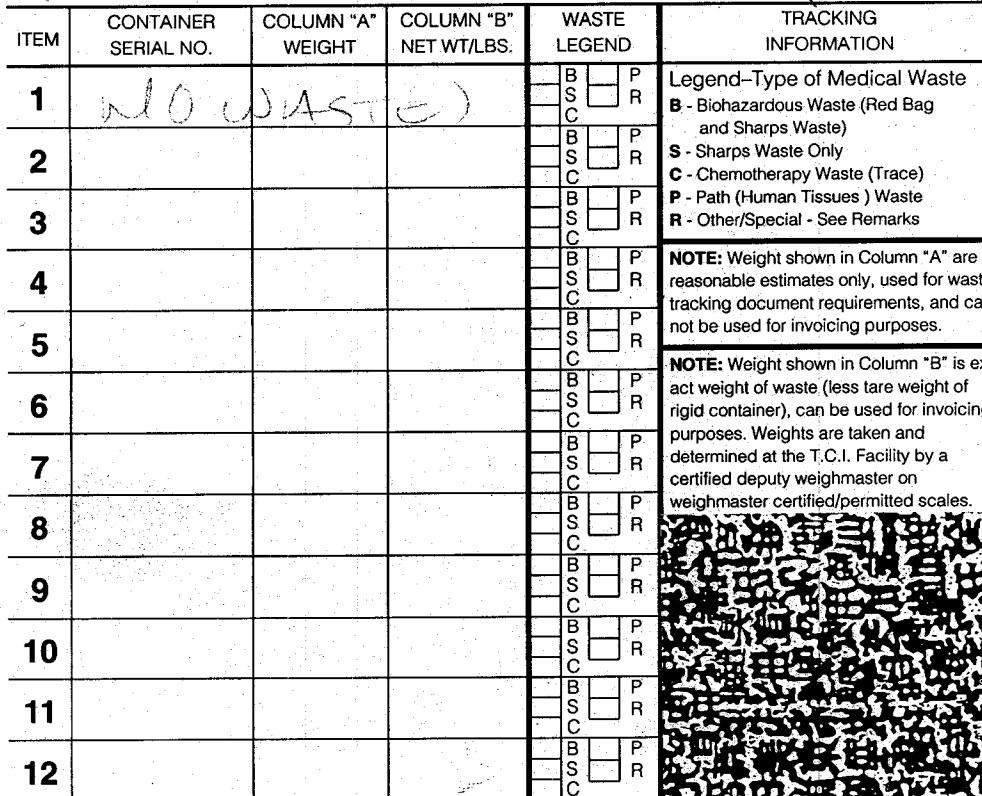 ITEM
CONTAINER
SERIAL NO.
COLUMN "A"
WEIGHT
COLUMN "B"
NET WT/LBS.
WASTE
LEGEND
TRACKING
INFORMATION
1 NO WASTE B P
S R
C
2 B P
S R
C
3 B P
S R
C
4 B P
S R
C
5 B P
S R
C
6 B P
S R
C
7 B P
S R
C
8 B P
S R
C
9 B P
S R
C
10 B P
S R
C
11 B P
S R
C
12 B P
S R
C
Legend–Type of Medical Waste
B - Biohazardous Waste (Red Bag
and Sharps Waste)
S - Sharps Waste Only
C - Chemotherapy Waste (Trace)
P - Path (Human Tissues ) Waste
R - Other/Special - See Remarks
NOTE: Weight shown in Column "A" are
reasonable estimates only, used for wast
tracking document requirements, and ca
not be used for invoicing purposes.
NOTE: Weight shown in Column "B" is ex
act weight of waste (less tare weight of
rigid container), can be used for invoicing
purposes. Weights are taken and
determined at the T.C.I. Facility by a
certified deputy weighmaster on
weighmaster certified/permitted scales.